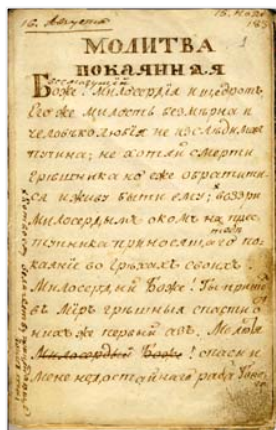 16. Августа
15. Нояб
183
1
МОЛИТВА
ПОКАЯННАЯ
Всемогущий
Боже! Милосердїя и щедротъ,
Его же милость безмѣрна и
человѣколюбїя не изслѣдимая
пучина; не хотяй смерти
грѣшника но еже обратити-
ся и живу быти ему; воззри
милосердымъ окомъ на прес
твой
тупника приносящаго по-
каянїе во грѣхахъ своихъ.
Милосердый Боже! Ты прише
въ мїръ грѣшныя спасти о
нихъ же первый азъ. Молю тя
Милосердый Боже! спаси и
мене недостойнаго раба Твое